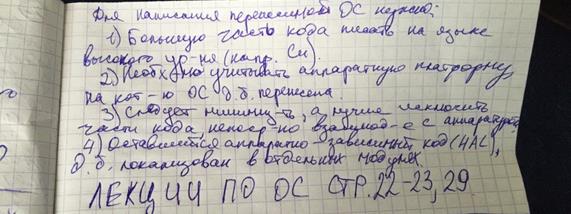 Для написания переносимой ОС нужно:
1) Большую часть кода писать на языке
высокого ур-ня (напр. Си).
2) Необх-мо учитывать аппаратную платформу,
на кот-ю ОС д.б. перенесена
3) Следует миними-ть, а лучше исключить
части кода, непоср-но взаимод-е с аппаратурой
4) Оставшийся аппаратно зависимый код (HAL),
д.б. локализован в отдельных модулях.
ЛЕКЦИИ ПО ОС СТР. 22-23, 29